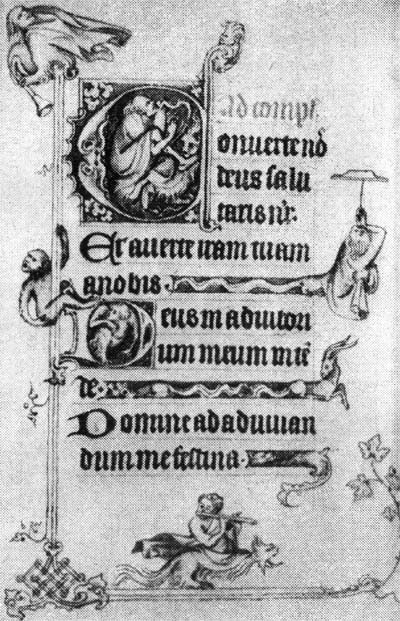 Ad compl̄.
Conuerte nō
deus salu
taris nr̄.
Et auerte iram tuam
a nobis.
Deus in adiutori
um meum intē
de.
Domine ad adiuuan
dum me festina.